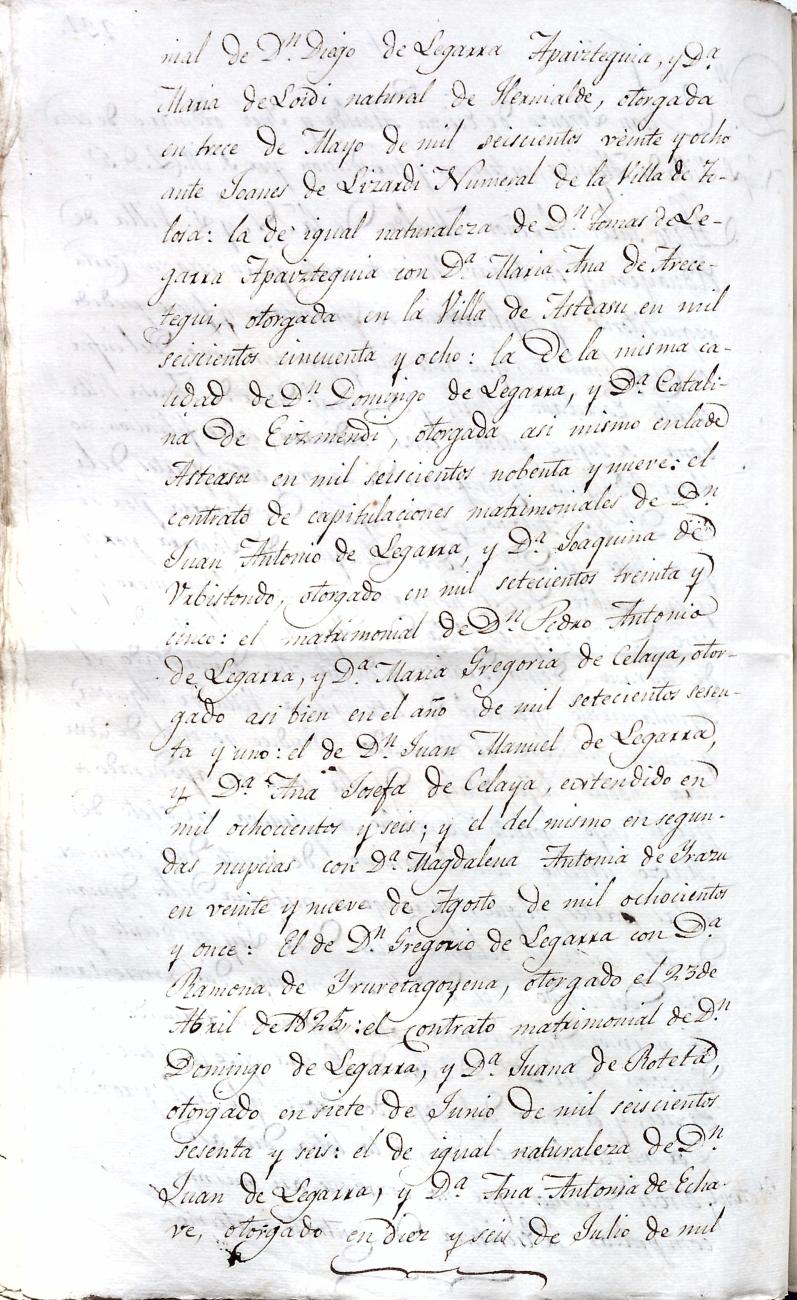 nial de Dn. Diego de Legarra Apaizteguia, y Da.
Maria de Loidi natural de Hernialde, otorgada
en trece de Mayo de mil seiscientos veinte y ocho
ante Joanes de Lizardi Numeral de la Villa de To-
losa: la de igual naturaleza de Dn. Tomas de Le-
garra Apaizteguia con Da. Maria Ana de Arece-
tegui, otorgada en la Villa de Asteasu en mil
seiscientos cincuenta y ocho: la de la misma ca-
lidad de Dn. Domingo de Legarra, y Da. Catali-
na de Eizmendi, otorgada asi mismo en la de
Asteasu en mil seiscientos nobenta y nueve: el
contrato de capitulaciones matrimoniales de Dn.
Juan Antonio de Legarra, y Da. Joaquina de
Urbistondo, otorgado en mil setecientos treinta y
cinco: el matrimonial de Dn. Pedro Antonio
de Legarra, y Da. Maria Gregoria de Celaya, otor-
gado asi bien en el año de mil setecientos sesen-
ta y uno: el de Dn. Juan Manuel de Legarra,
y Da. Ana Josefa de Celaya, extendido en
mil ochocientos y seis; y el del mismo en segun-
das nupcias con Da. Magdalena Antonia de Yrazu
en veinte y nueve de Agosto de mil ochocientos
y once: El de Dn. Gregorio de Legarra con Da.
Ramona de Yruretagoyena, otorgado el 23 de
Abril de : el contrato matrimonial de Dn.
Domingo de Legarra, y Da. Juana de Roteta,
otorgado en siete de Junio de mil seiscientos
sesenta y seis: el de igual naturaleza de Dn.
Juan de Legarra, y Da. Ana Antonia de Echa-
ve, otorgado en diez y seis de Julio de mil